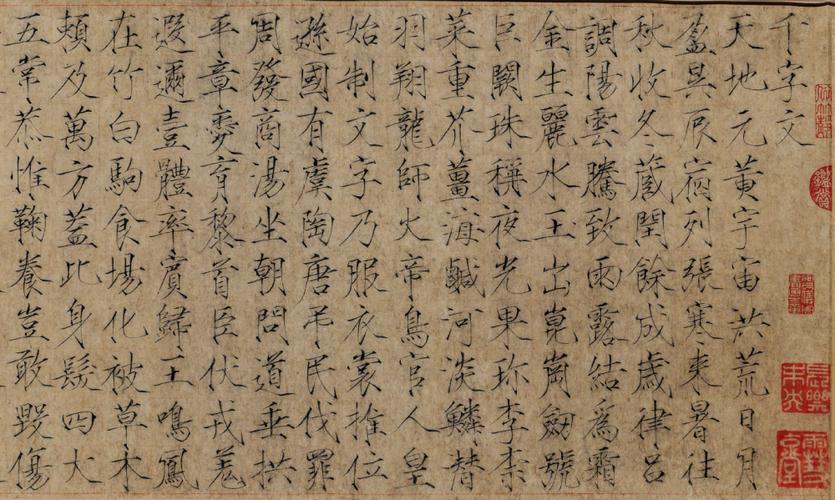 千字文
天地元黃宇宙洪荒日月
盈昃辰宿列張寒来暑往
秋收冬蔵閏餘成歲律吕
調陽雲騰致雨露結為霜
金生麗水玉出崑崗劔號
巨闕珠稱夜光果珎李柰
菜重芥薑海鹹河淡鱗替
羽翔龍師火帝鳥官人皇
始制文字乃服衣裳推位
遜國有虞陶唐弔民伐罪
周發商湯坐朝問道垂拱
平章愛育黎首臣伏戎羌
遐邇壹體率賓歸王鳴鳳
在竹白駒食場化被草木
頼及萬方蓋此身髮四大
五常恭惟鞠養豈敢毀傷